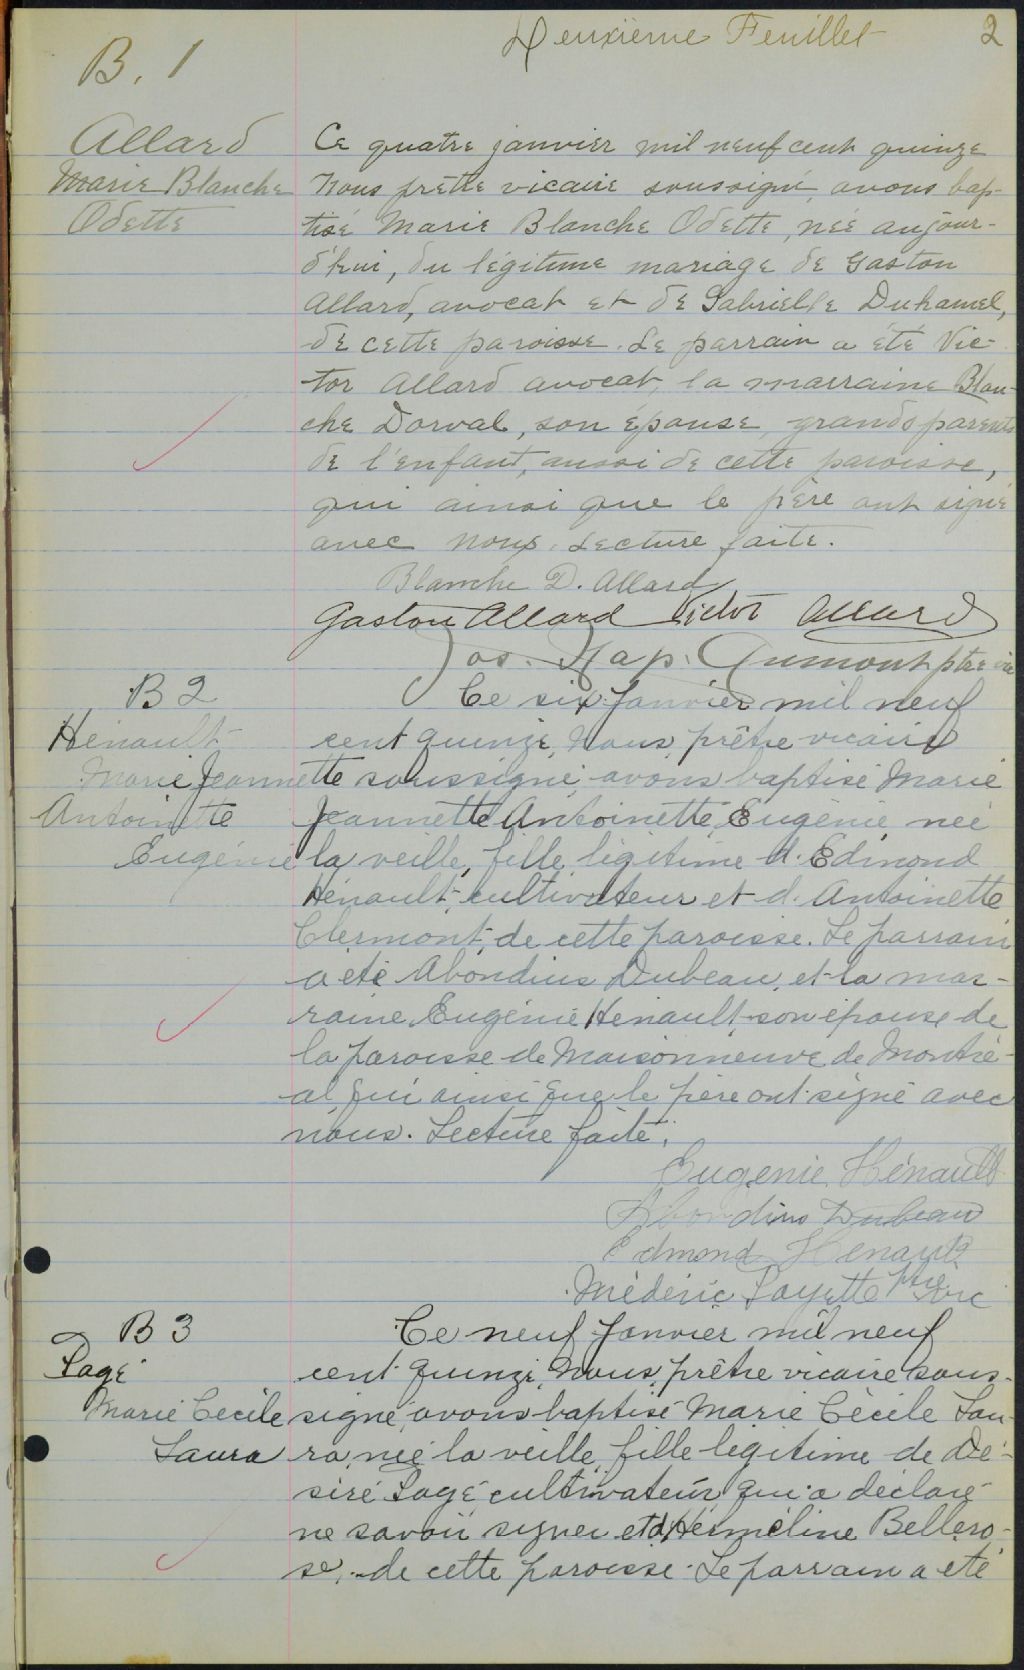 Deuxième Feuillet 2
B. 1
Allard
Marie Blanche
Odette
Ce quatre janvier mil neuf cent quinze
Nous prêtre vicaire soussigné, avons bap-
tisé Marie Blanche Odette, née aujour-
d'hui, du légitime mariage de Gaston
Allard, avocat et de Gabrielle Duhamel,
de cette paroisse. Le parrain a été Vic-
tor Allard avocat, la marraine Blan-
che Dorval, son épouse, grands parents
de l'enfant, aussi de cette paroisse,
qui ainsi que le père ont signé
avec nous. Lecture faite.
Blanche D. Allard
Gaston Allard Victor Allard
Jos. Nap. Dumont ptre vic
B 2
Hénault
Marie Jeannette
Antoinette
Eugénie
Ce six Janvier mil neuf
cent quinze, Nous prêtre vicaire
soussigné, avons baptisé Marie
Jeannette Antoinette Eugénie née
la veille, fille légitime d. Edmond
Hénault, cultivateur et d. Antoinette
Clermont, de cette paroisse. Le parrain
a été Abondius Dubeau, et la mar-
raine, Eugénie Hénault son épouse de
la paroisse de Maisonneuve de Montré-
al, qui ainsi que le père ont signé avec
nous. Lecture faite.
Eugenie Hénault
Abondius Dubeau
Edmond Henault
Médéric Payette ptre vic
B 3
Pagé
Marie Cécile
Laura
Ce neuf Janvier mil neuf
cent quinze, Nous, prêtre vicaire sous-
signé, avons baptisé Marie Cécile Lau-
ra, née la veille, fille légitime de Dé-
siré Pagé cultivateur, qui a déclaré
ne savoir signer et d'Herméline Bellero-
se, de cette paroisse. Le parrain a été